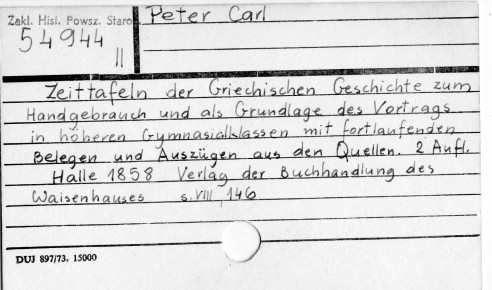 Zakl. Hist. Powsz. Staroż
Peter Carl
54944
II
Zeittafeln der Griechischen Geschichte zum
Handgebrauch und als Grundlage des Vortrags
in höheren Gymnasialklassen mit fortlaufenden
Belegen und Auszügen aus den Quellen. 2 Aufl.
Halle 1858 Verlag der Buchhandlung des
Waisenhauses s. VIII, 146
DUJ 897/73. 15000